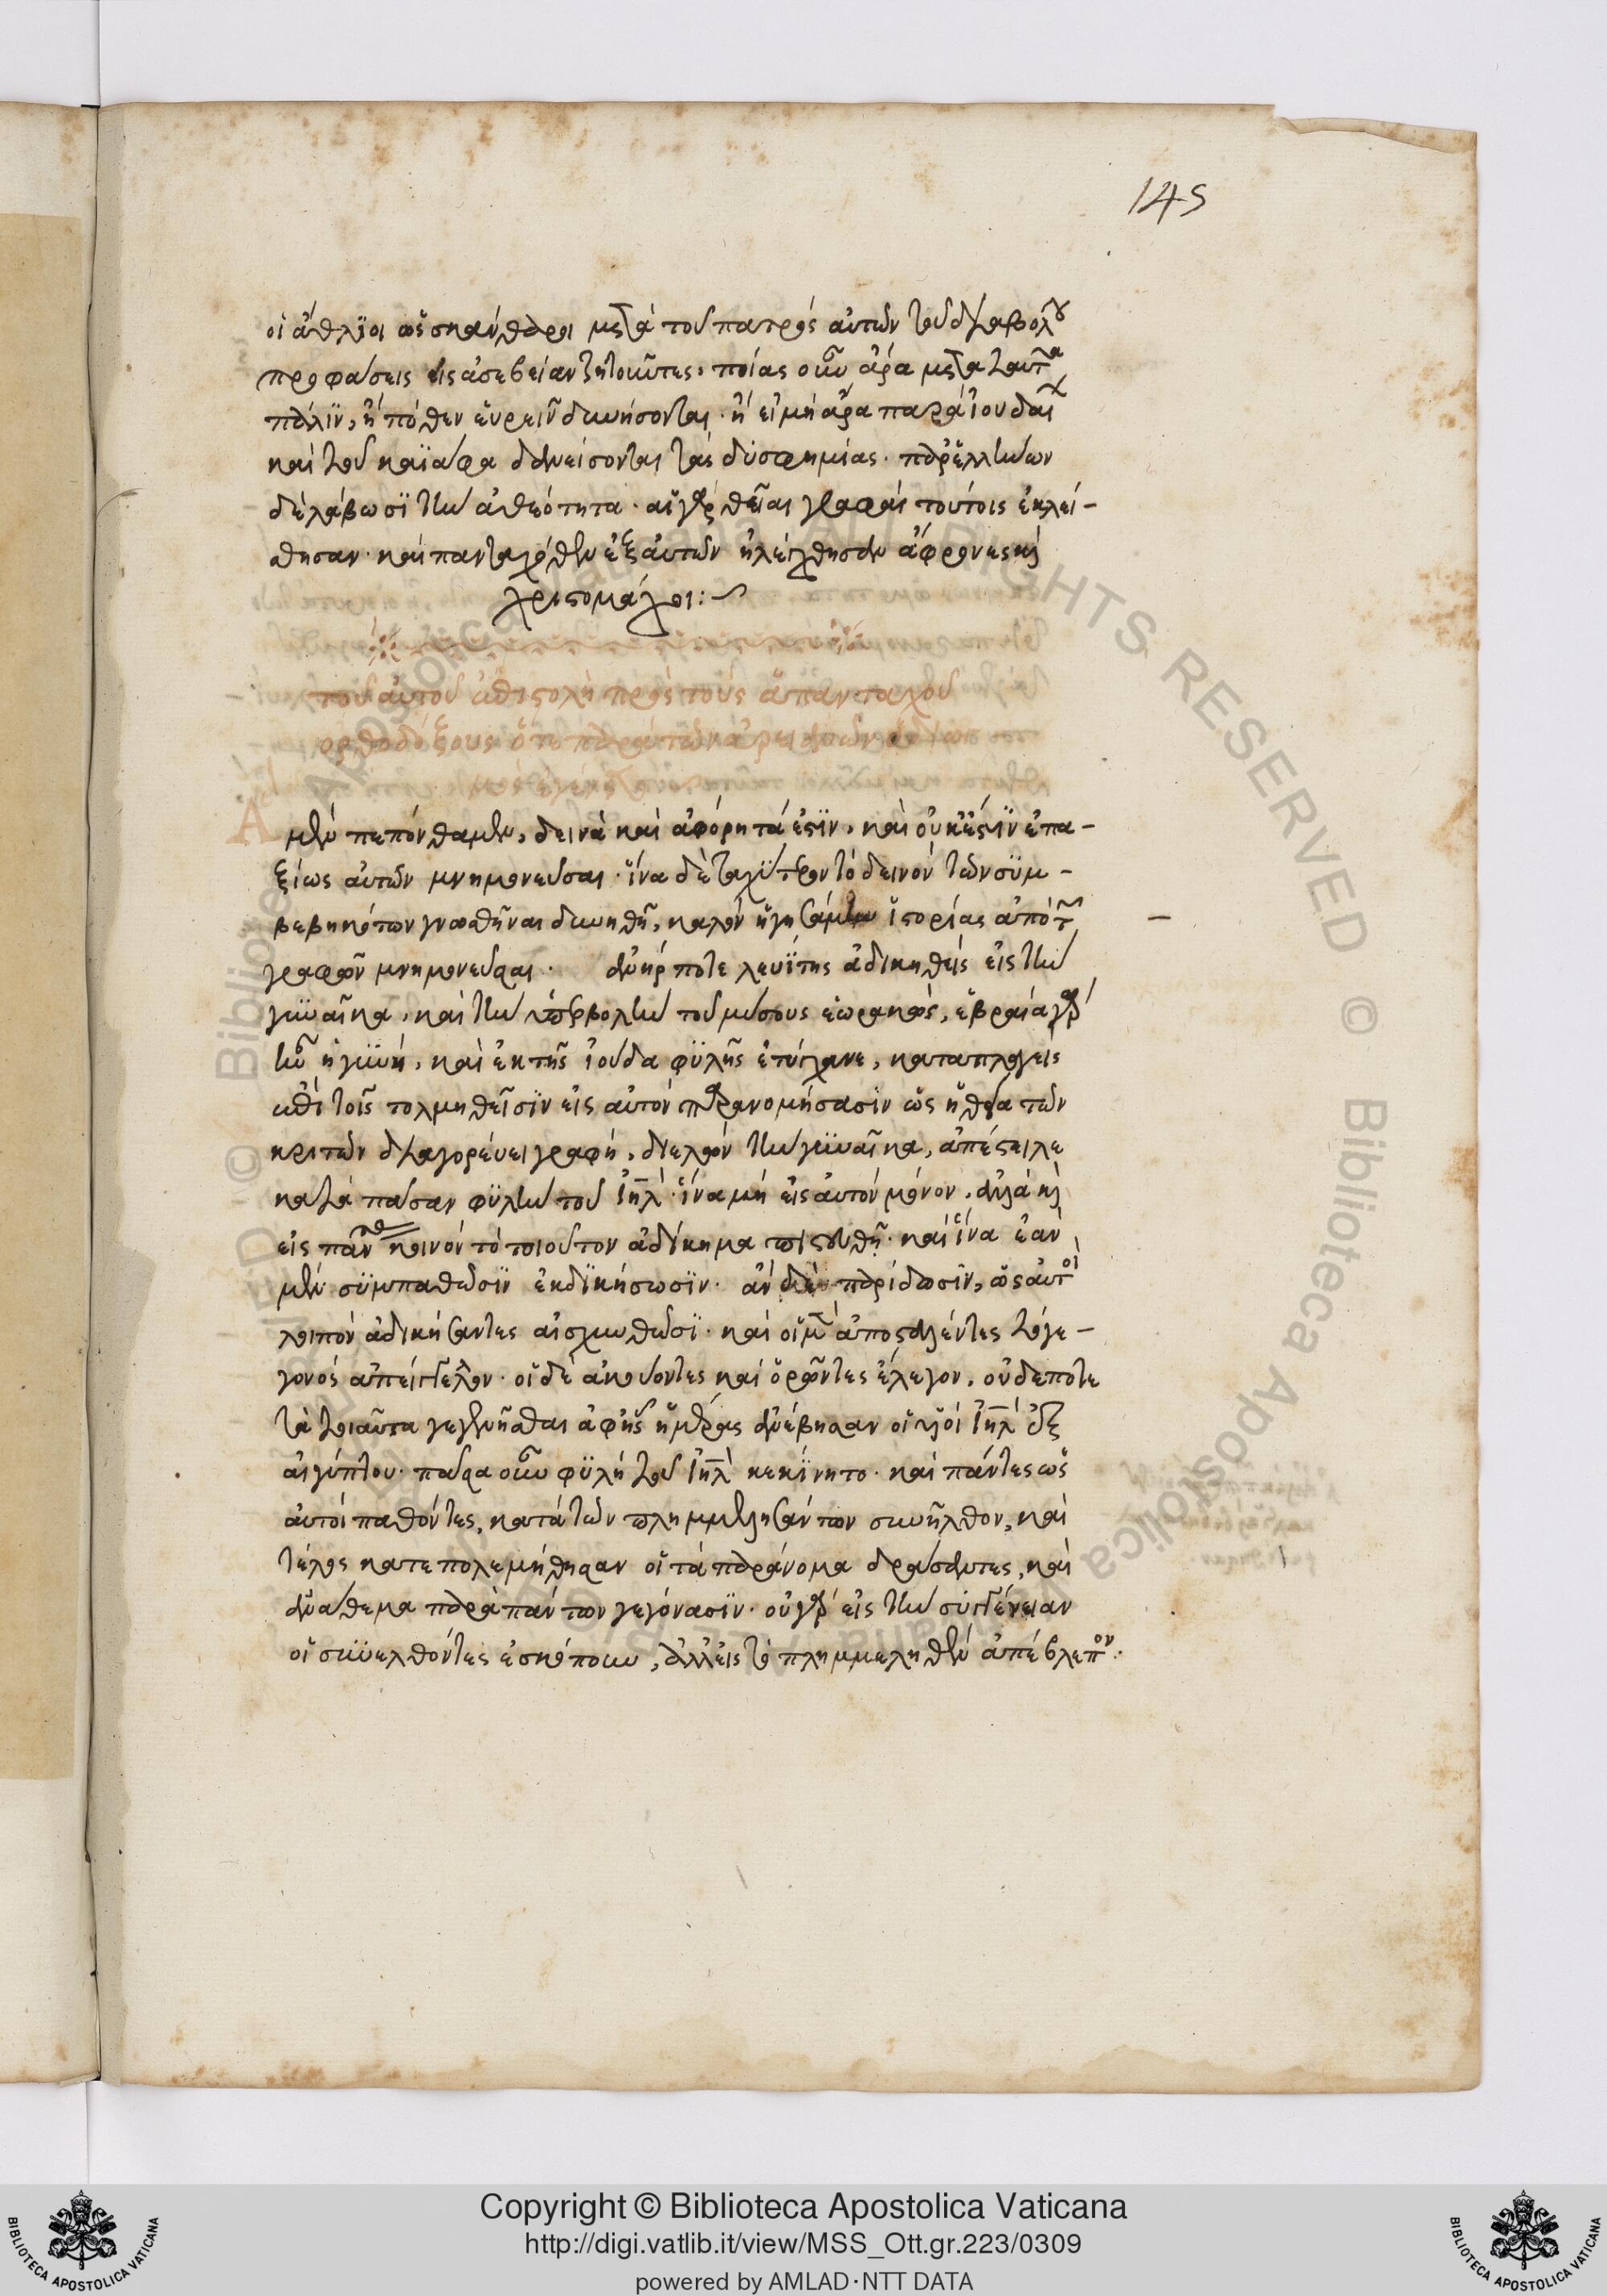 145
οἱ ἄθλιοι ὡς κάνθαροι μετὰ τοῦ πατρὸς αὐτῶν τοῦ διαβόλου
προφάσεις εἰς ἀσέβειαν ζητοῦντες. ποίας οὖν ἄρα μετὰ ταῦτα
πάλιν, ἢ πόθεν εὑρεῖν δυνήσονται. ἢ εἰ μὴ ἄρα παρὰ ἰουδαίων
καὶ τοῦ καϊάφα δανείσονται τὰς δυσφημίας. παρ' ἑλλήνων
δὲ λάβωσι τὴν ἀθεότητα. αἱ γὰρ θεῖαι γραφαὶ τούτοις ἐκλεί-
σθησαν. καὶ πανταχόθεν ἐξ αὐτῶν ἠλέγχθησαν ἄφρονες καὶ
χριστομάχοι:~
τοῦ αὐτοῦ ἐπιστολὴ πρὸς τοὺς ἁπανταχοῦ
ὀρθοδόξους ὅτε παρὰ τῶν ἀρειανῶν
Ἃ μὲν πεπόνθαμεν, δεινὰ καὶ ἀφόρητά ἐστιν, καὶ οὐκ ἔστιν ἐπα-
ξίως αὐτῶν μνημονεῦσαι. ἵνα δὲ ταχύτερον τὸ δεινὸν τῶν συμ-
βεβηκότων γνωσθῆναι δυνηθῇ, καλὸν ἡγησάμην ἱστορίας ἀπὸ τῶν
γραφῶν μνημονεῦσαι. ἀνήρ ποτε λευίτης ἀδικηθεὶς εἰς τὴν
γυναῖκα, καὶ τὴν ὑπερβολὴν τοῦ μύσους ἑωρακώς, ἑβραία γὰρ
ἦν ἡ γυνή, καὶ ἐκ τῆς ἰούδα φυλῆς ἐτύγχανε, καταπλαγεὶς
ἐπὶ τοῖς τολμηθεῖσιν εἰς αὐτὸν παρανομήσασιν ὡς ἡ θεία τῶν
κριτῶν διαγορεύει γραφή, διελὼν τὴν γυναῖκα, ἀπέστειλε
κατὰ πᾶσαν φυλὴν τοῦ ἰηλ. ἵνα μὴ εἰς αὐτὸν μόνον. ἀλλὰ καὶ
εἰς πάντας κοινὸν τὸ τοιοῦτον ἀδίκημα πιστευθῇ. καὶ ἵνα ἐὰν
μὲν συμπαθῶσιν ἐκδικήσωσιν. ἂν δὲ παρίδωσιν, ὡς αὐτοὶ
λοιπὸν ἀδικήσαντες αἰσχυνθῶσι. καὶ οἱ μὲν ἀποσταλέντες τὸ γε-
γονὸς ἀπέστελλον. οἱ δὲ ἀκούοντες καὶ ὁρῶντες ἔλεγον. οὐδέποτε
τὰ τοιαῦτα γεγενῆσθαι ἀφ' ἧς ἡμέρας ἀνέβησαν οἱ υἱοὶ ἰηλ ἐξ
αἰγύπτου. πᾶσα οὖν φυλὴ τοῦ ἰηλ κεκίνητο. καὶ πάντες ὡς
αὐτοὶ παθόντες, κατὰ τῶν πλημμελησάντων συνῆλθον, καὶ
τέλος κατεπολεμήθησαν οἱ τὰ παράνομα δράσαντες, καὶ
ἀνάθεμα παρὰ πάντων γεγόνασιν. οὐ γὰρ εἰς τὴν συγγένειαν
οἱ συνελθόντες ἐσκόπουν, ἀλλ' εἰς τὸ πλημμεληθὲν ἀπέβλεπον.
Copyright © Biblioteca Apostolica Vaticana
http://digi.vatlib.it/view/MSS_Ott.gr.223/0309
powered by AMLAD·NTT DATA
BIBLIOTECA APOSTOLICA VATICANA
BIBLIOTECA APOSTOLICA VATICANA